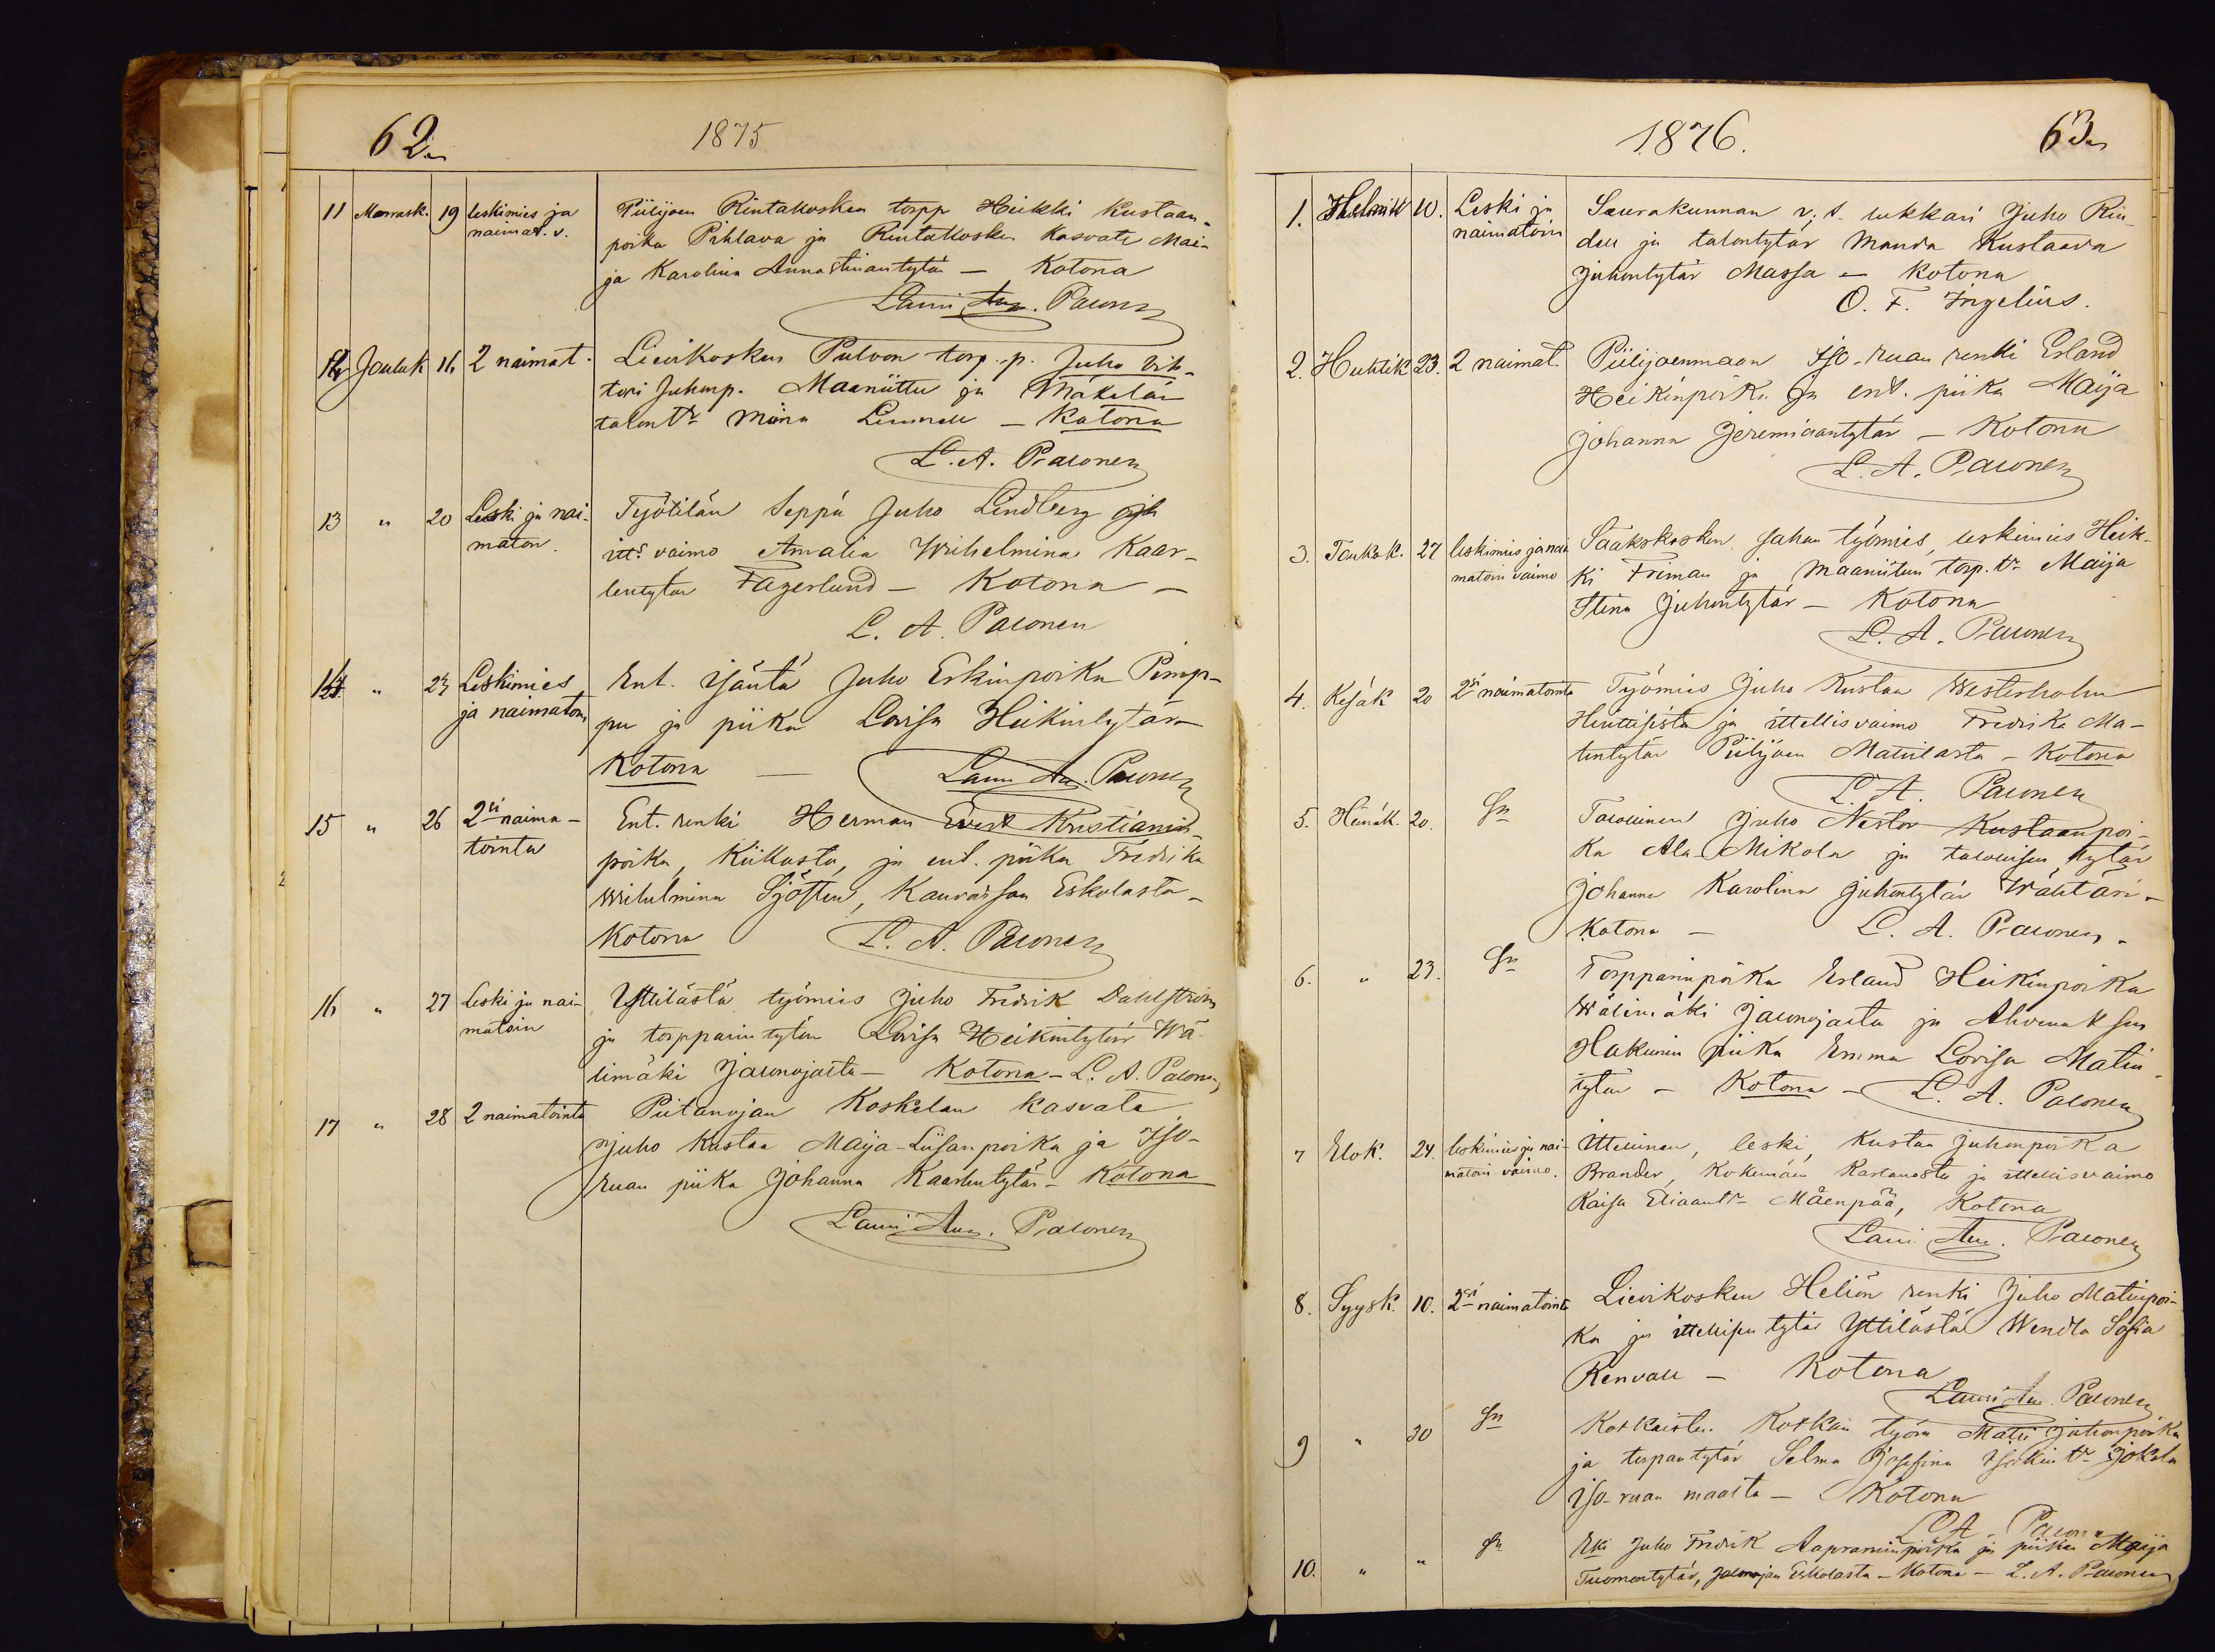 62.
1875
11 Marrask. 19 leskimies ja Piilijoen Rintakosken torpp Heikki Kustaan-
naimat. v. poika Pihlava ja Rintakosken Kasvate Mai-
ja Karolina Annastiinantytär — Kotona
Lauri Aug. Palonen
12 Jouluk 16 2 naimat. Lievikosken Pulvon torp. p. Juho Vih-
tori Juhonp. Maaniittu ja Mäkelän
talontr Miina Lemmell — Kotona
L. A. Palonen
13 " 20 Leski ja nai- Työtilän Seppä Juho Lindberg ja
maton. itts vaimo Amalia Wilhelmina Kaar-
lentytär Fagerlund — Kotona —
L. A. Palonen
14 " 23 Leskimies Ent. isäntä Juho Erkinpoika Pimp-
ja naimaton pu ja piika Lovisa Heikintytär
Kotona — Lauri Au. Palonen
15 " 26 2si naima- Ent. renki Herman Evert Kristianin-
tointa poika, Kiikasta, ja ent. piika Fredrika
Wilhelmina Sjösten, Kauvatsan Eskolasta -
Kotona L. A. Palonen
16 " 27 Leski ja nai- Yttilästä työmies Juho Fredrik Dahlström
matoin ja torpparin tytär Lovisa Heikintytär Wä-
limäki Jalonojasta — Kotona - L. A. Palonen
17 " 28 2 naimatointa Piitanojan Koskelan kasvate
Juho Kustaa Maija-Liisanpoika ja Iso-
ruan piika Johanna Kaarlentytär - Kotona
Lauri Aug. Palonen
1876.
63
1. Helmik 10. Leski ja Seurakunnan v. t. lukkari Juho Rin-
naimatoin dell ja talontytär Manda Kustaava
Juhontytär Massa — Kotona
O. F. Ingelius.
2. Huhtik 23. 2 naimat. Piilijoenmaan Iso-ruan renki Erland
Heikinpoika ja ent. piika Maija
Johanna Jeremiaantytär — Kotona
L. A. Palonen
3. Toukok. 27 leskimies ja nai Sääkskosken sahan työmies, leskimies Heik-
matoin vaimo ki Friman ja Maaniitun torp. tr Maija
Stina Juhontytär — Kotona
L. A. Palonen
4. Kesäk 20 2si naimatointa Työmies Juho Kustaa Westerholm
ja ittellisvaimo Fredrika Ma-
tintytär Piilijoen Mattilasta - Kotona
L. A. Palonen
5. Heinäk. 20. Sn Talollinen Juho Nestor Kustaanpoi-
ka Ala-Mikola ja talollisen tytär
Johanna Karolina Juhontytär Wähtäri -
Kotona — L. A. Palonen.
6. " 23. Sn Torpparinpoika Erland Heikinpoika
Wälimäki Jalonojasta ja Ahvenuksen
Hakunin piika Emma Lovisa Matin-
tytär — Kotona — L. A. Palonen
7 Elok. 24. leskimies ja nai- Ittellinen, leski, Kustaa Juhonpoika
matoin vaimo. Brander, Kokemäen Kartanosta ja ittellisvaimo
Kaisa Eliaantr Mäenpää, Kotona
Lauri Au. Palonen
8. Syysk. 10. 2si naimatointa Lievikosken Heliön renki Juho Matinpoi-
ka ja ittellisen tytär Yttilästä Wendla Sofia
Renvall — Kotona
Lauri Au. Palonen
9 " 30 Sn Kotkaisten Kotkan työm Matti Juhonpoika
ja torpantytär Selma Josefina Isakintr Jokela
Iso-ruan maalta — Kotona
L A. Palon
10. " " Sn Rki Juho Fredrik Aapraminpoika ja piika Maija
Tuomontytär, Jalonojan Eskolasta - Kotona — L. A. Palonen